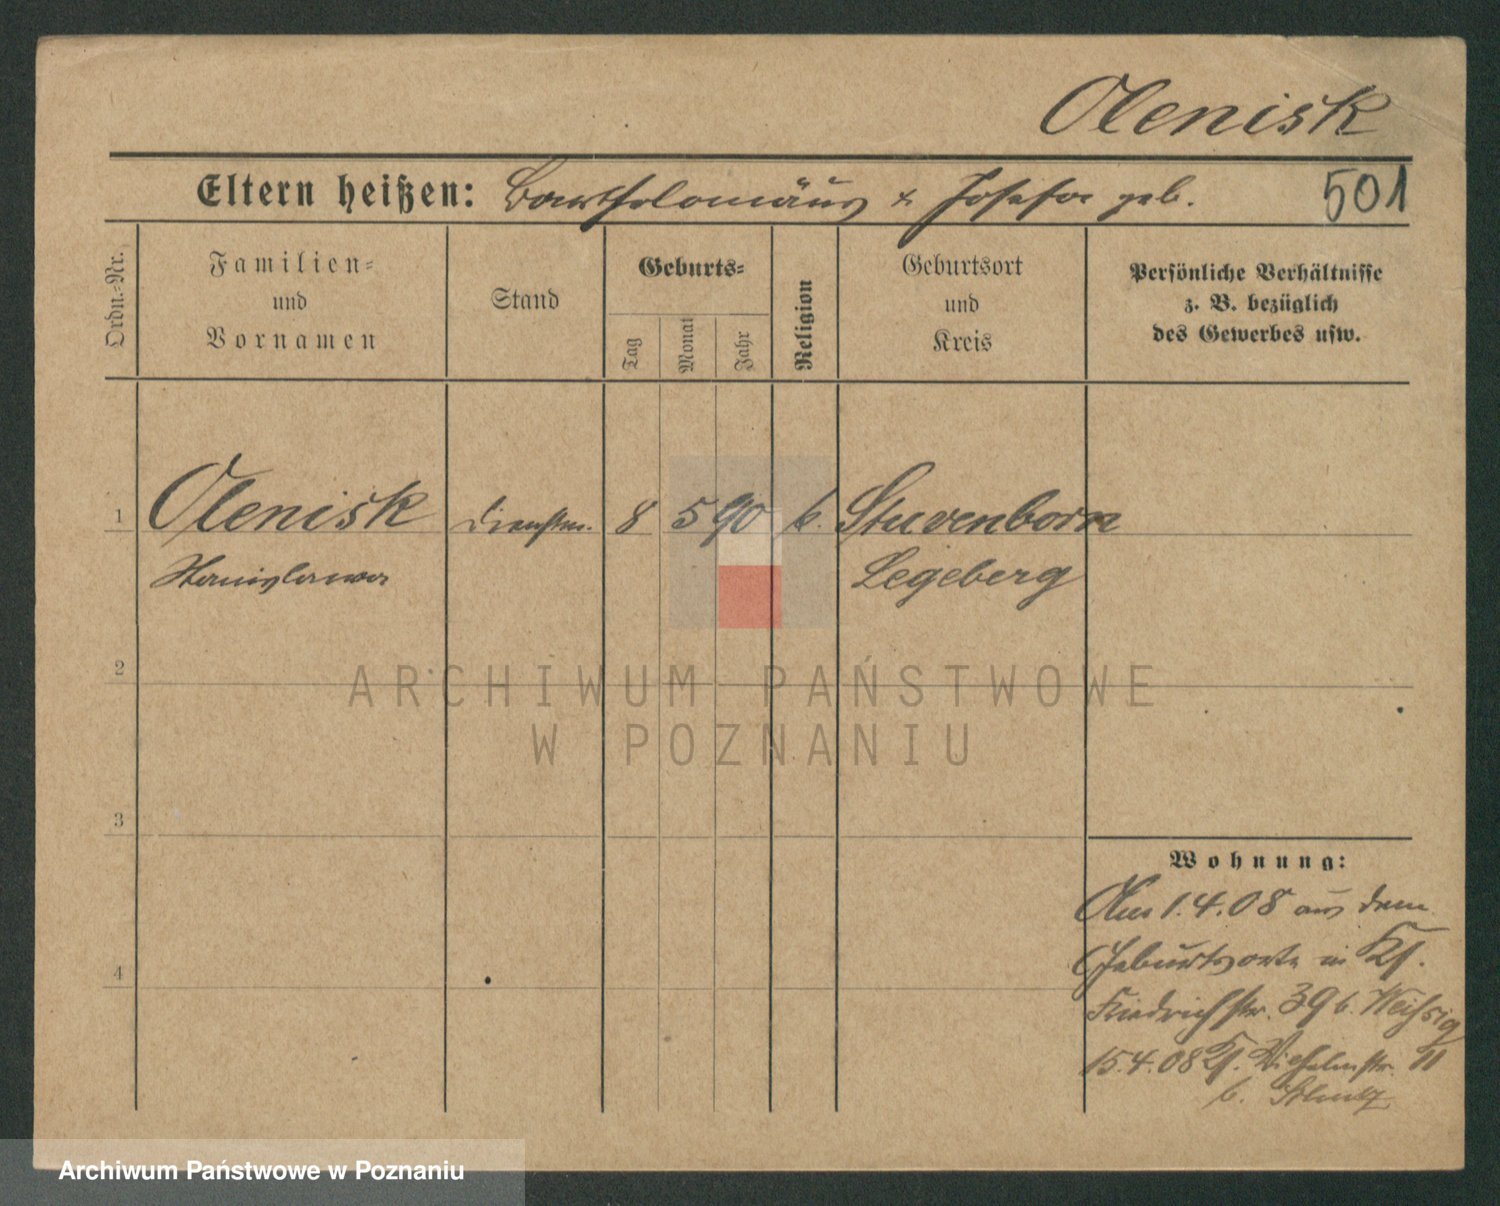 Olenisk
Eltern heißen: Bartholomäus & Josefa geb.
501
Ordn.-Nr.
Familien-
und
Vornamen
Stand
Geburts-
Tag
Monat
Jahr
Religion
Geburtsort
und
Kreis
Persönliche Verhältnisse
z. B. bezüglich
des Gewerbes usw.
1 Olenisk Dienstm. 8 5 90 k. Stuvenborn
Stanislawa Segeberg
2
3
4
Wohnung:
Am 1.4.08 aus dem
Geburtsorte in
Friedrichstr. 39 b.
15.4.08 Wilhelmstr. 11
b.
ARCHIWUM PAŃSTWOWE
W POZNANIU
Archiwum Państwowe w Poznaniu